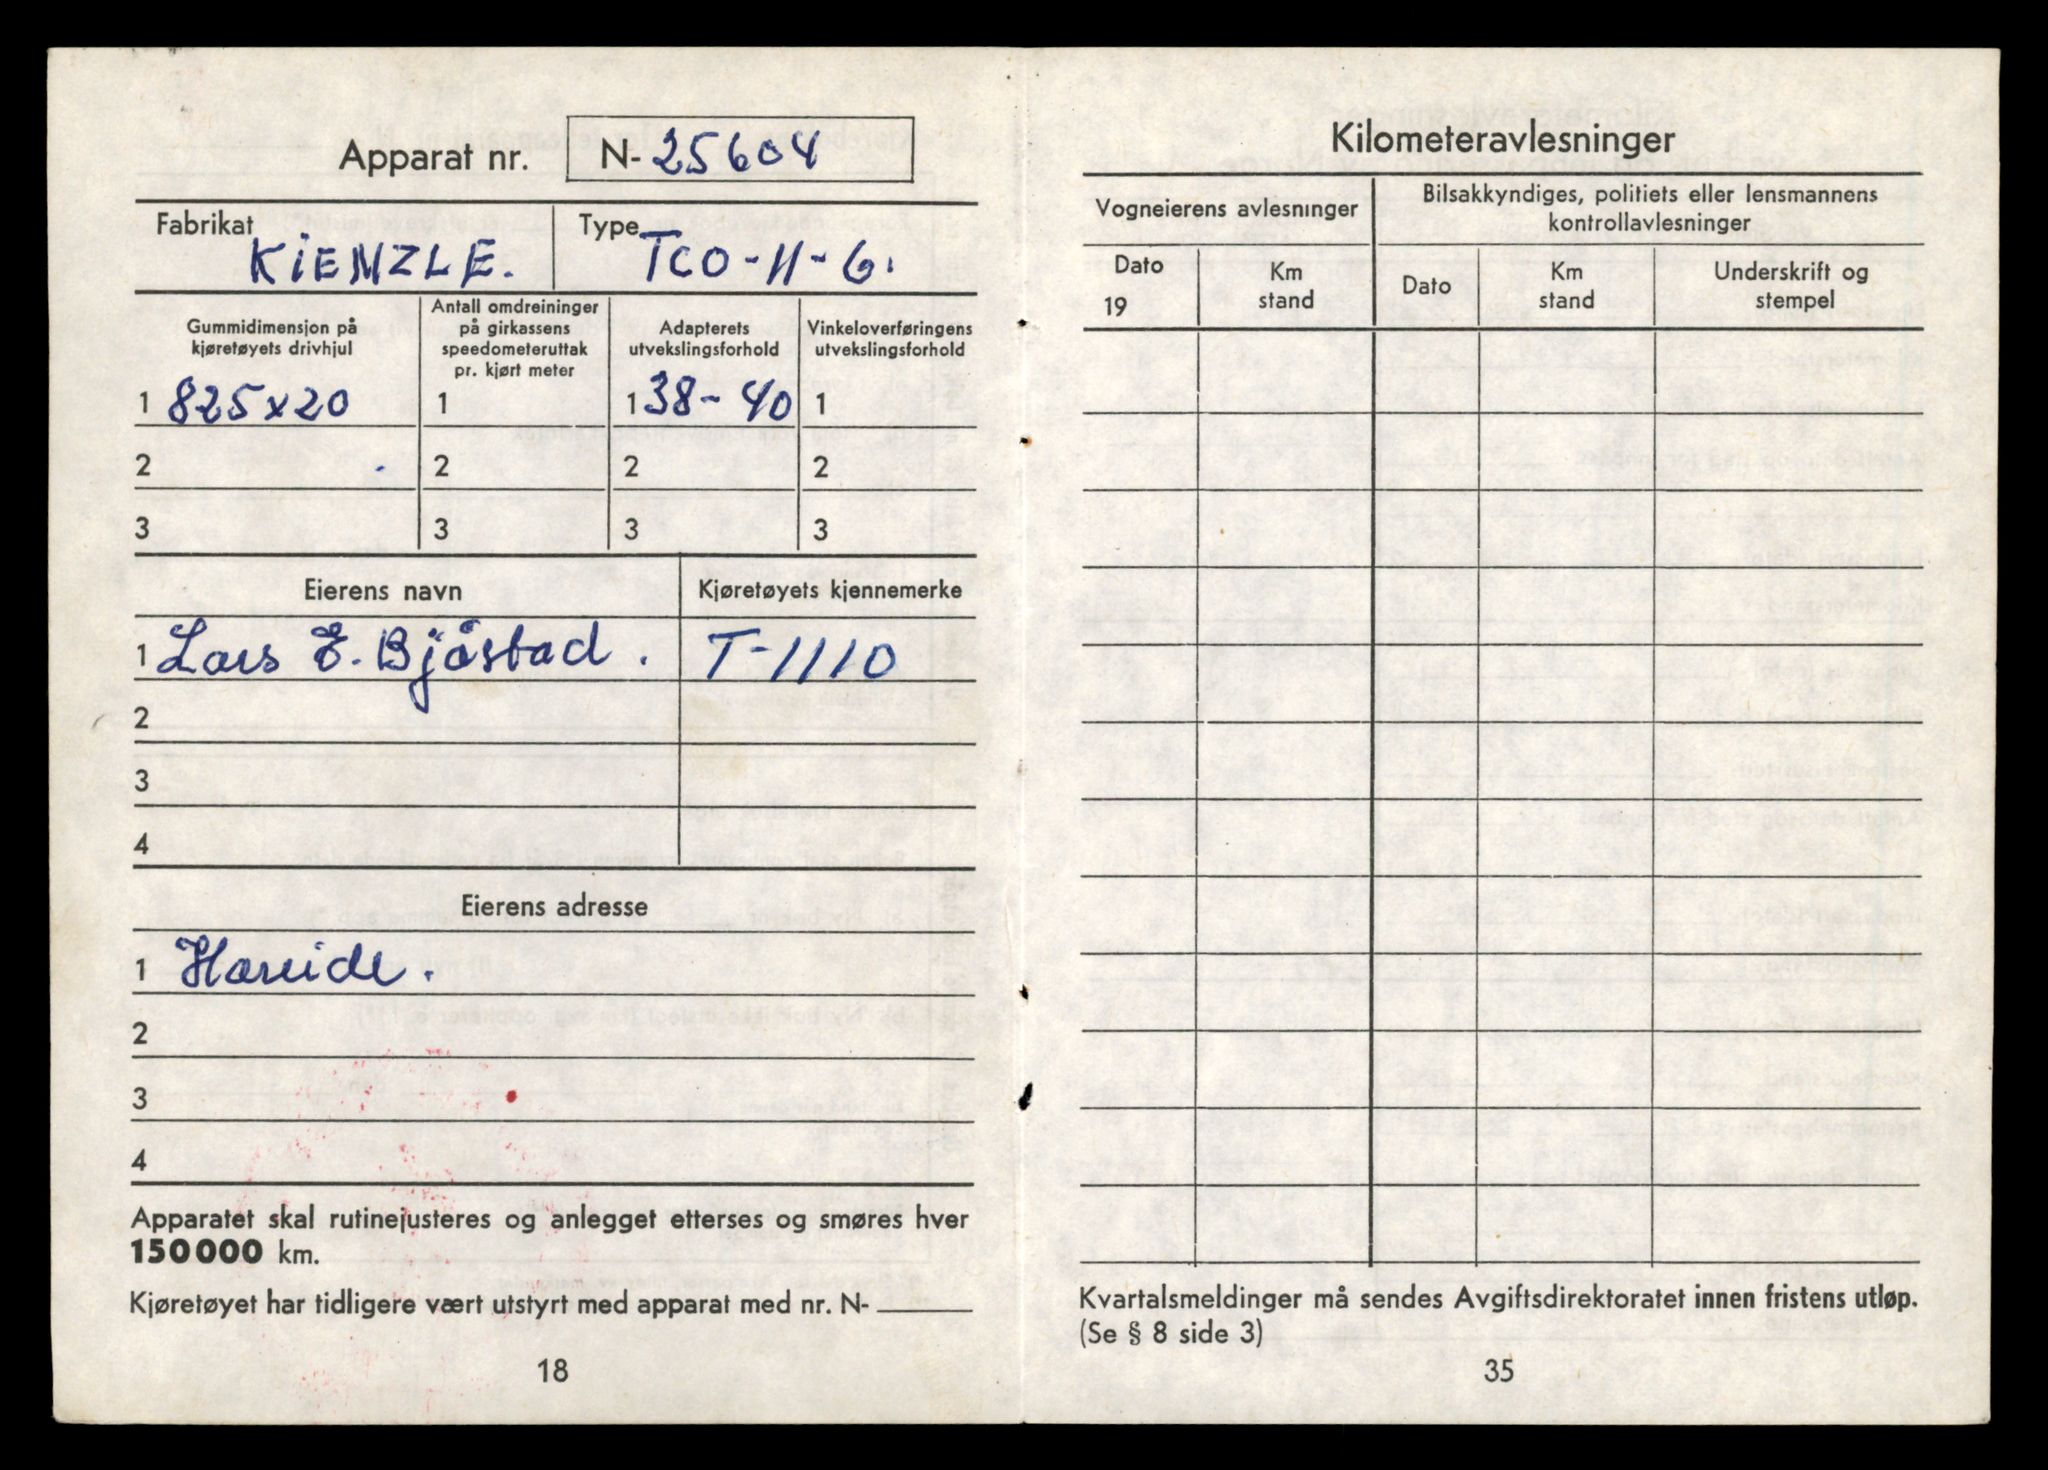 Apparat nr. N- 25604
Fabrikat
KiENZLE.
Type
TCO-11-6.
Gummidimensjon på
kjøretøyets drivhjul
Antall omdreininger
på girkassens
speedometeruttak
pr. kjørt meter
Adapterets
utvekslingsforhold
Vinkeloverføringens
utvekslingsforhold
1 825x20 1 1 38-40 1
2 2 2 2
3 3 3 3
Eierens navn Kjøretøyets kjennemerke
1 Lars E. Bjåstad. T-1110
2
3
4
Eierens adresse
1 Hareide.
2
3
4
Apparatet skal rutinejusteres og anlegget etterses og smøres hver
150000 km.
Kjøretøyet har tidligere vært utstyrt med apparat med nr. N-
18
Kilometeravlesninger
Vogneierens avlesninger
Bilsakkyndiges, politiets eller lensmannens
kontrollavlesninger
Dato
19
Km
stand
Dato
Km
stand
Underskrift og
stempel
Kvartalsmeldinger må sendes Avgiftsdirektoratet innen fristens utløp.
(Se § 8 side 3)
35